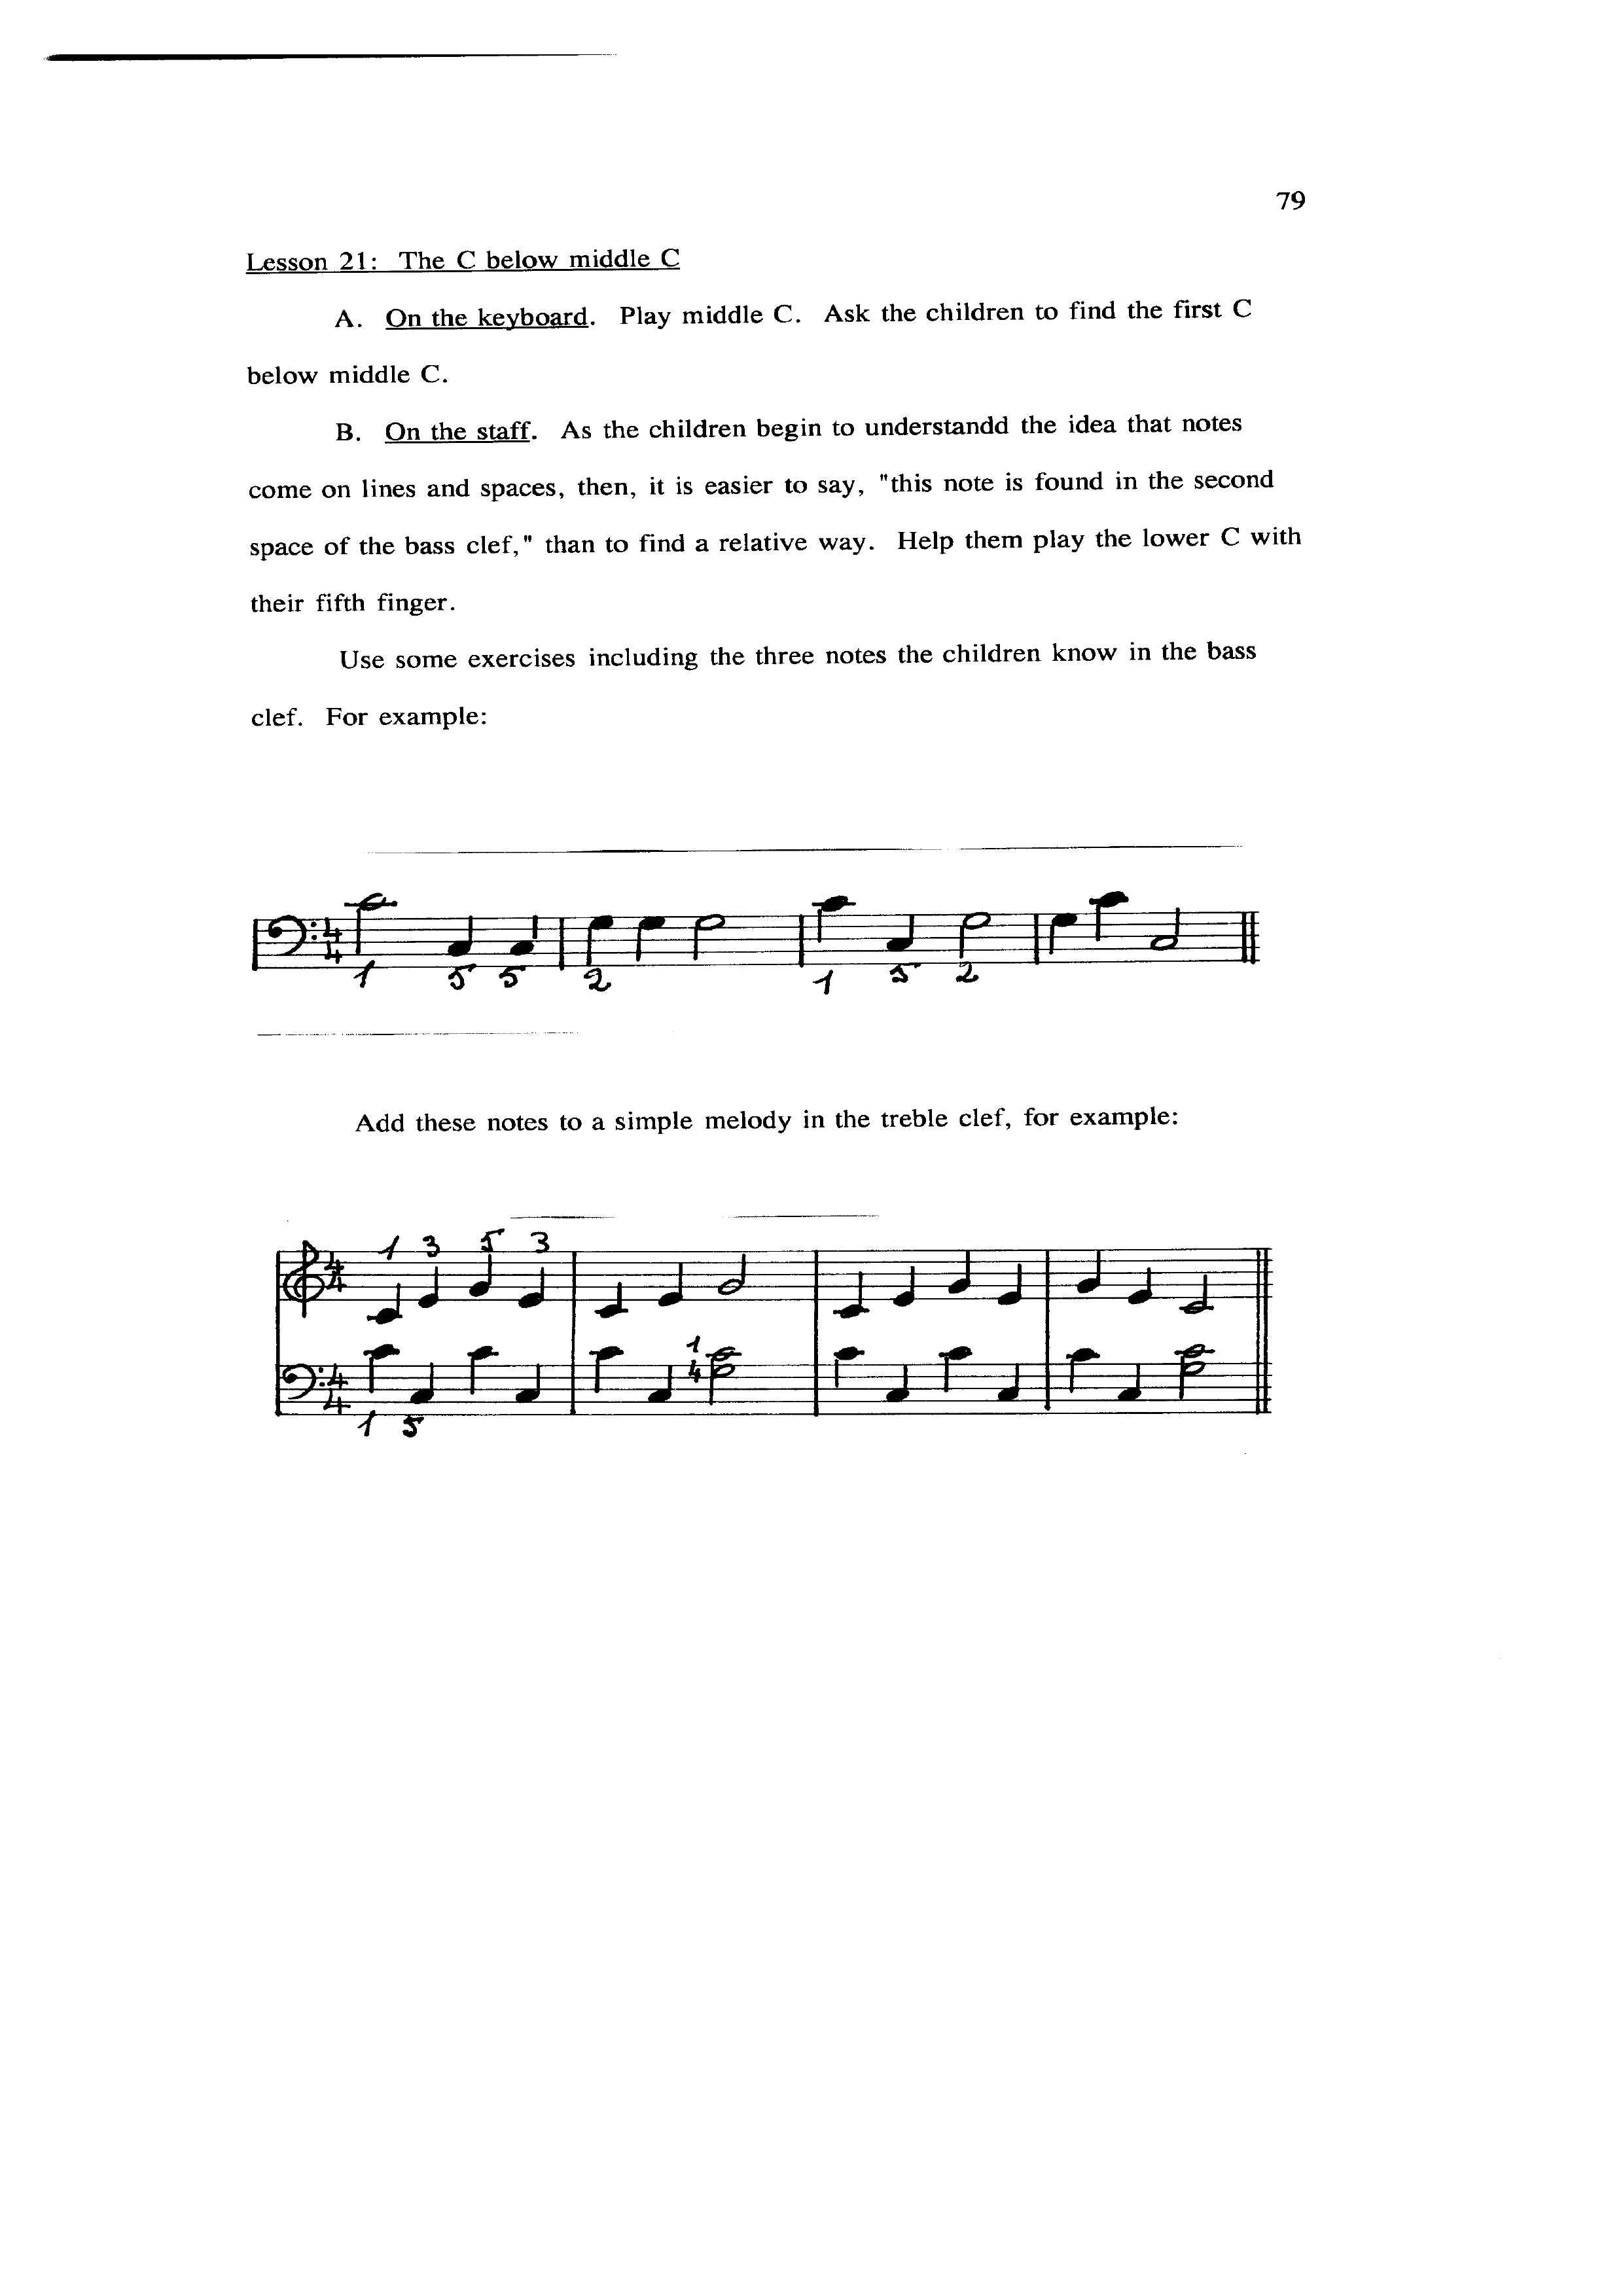 79
Lesson 21: The C below middle C
A. On the keyboard. Play middle C. Ask the children to find the first C
below middle C.
B. On the staff. As the children begin to understandd the idea that notes
come on lines and spaces, then, it is easier to say, "this note is found in the second
space of the bass clef," than to find a relative way. Help them play the lower C with
their fifth finger.
Use some exercises including the three notes the children know in the bass
clef. For example:
4
4
1 5 5 2 1 5 2
Add these notes to a simple melody in the treble clef, for example:
1 3 5 3
4
4
1
4
4
4
1 5